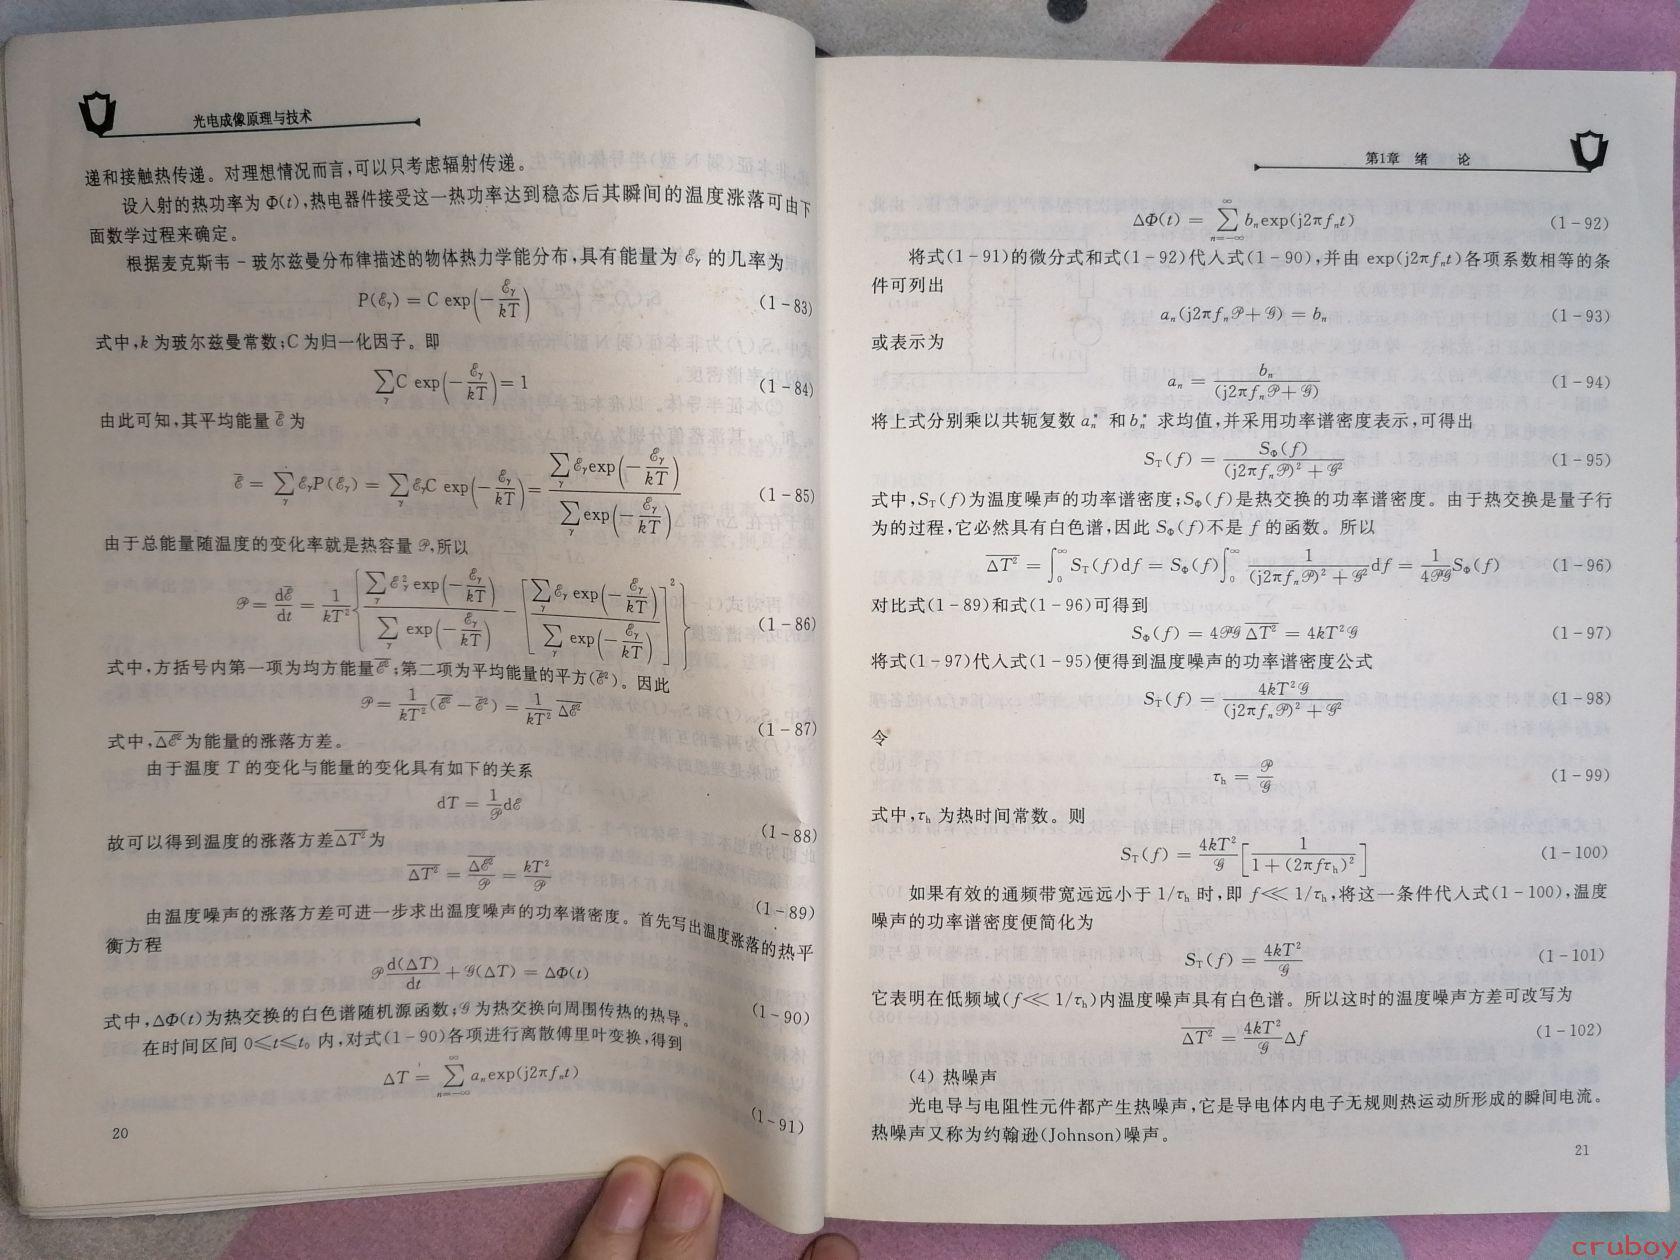 光电成像原理与技术
递和接触热传递。对理想情况而言,可以只考虑辐射传递。
设入射的热功率为 Φ(t),热电器件接受这一热功率达到稳态后其瞬间的温度涨落可由下
面数学过程来确定。
根据麦克斯韦-玻尔兹曼分布律描述的物体热力学能分布,具有能量为 ℰγ 的几率为
P(ℰγ) = C exp(-ℰγ/kT) (1-83)
式中,k 为玻尔兹曼常数;C 为归一化因子。即
∑γ C exp(-ℰγ/kT) = 1 (1-84)
由此可知,其平均能量 ℰ̅ 为
ℰ̅ = ∑γ ℰγP(ℰγ) = ∑γ ℰγC exp(-ℰγ/kT) = ∑γ ℰγexp(-ℰγ/kT) / ∑γ exp(-ℰγ/kT) (1-85)
由于总能量随温度的变化率就是热容量 𝒫,所以
𝒫 = dℰ̅/dt = 1/kT² { ∑γ ℰγ² exp(-ℰγ/kT) / ∑γ exp(-ℰγ/kT) - [ ∑γ ℰγ exp(-ℰγ/kT) / ∑γ exp(-ℰγ/kT) ]² } (1-86)
式中,方括号内第一项为均方能量 ℰ̅²̅;第二项为平均能量的平方(ℰ̅²)。因此
𝒫 = 1/kT² (ℰ̅²̅ - ℰ̅²) = 1/kT² Δℰ̅²̅ (1-87)
式中,Δℰ̅²̅ 为能量的涨落方差。
由于温度 T 的变化与能量的变化具有如下的关系
dT = 1/𝒫 dℰ (1-88)
故可以得到温度的涨落方差 ΔT̅²̅ 为
ΔT̅²̅ = Δℰ̅²̅/𝒫 = kT²/𝒫 (1-89)
由温度噪声的涨落方差可进一步求出温度噪声的功率谱密度。首先写出温度涨落的热平
衡方程
𝒫 d(ΔT)/dt + 𝒢(ΔT) = ΔΦ(t) (1-90)
式中,ΔΦ(t)为热交换的白色谱随机源函数;𝒢 为热交换向周围传热的热导。
在时间区间 0≤t≤t₀ 内,对式(1-90)各项进行离散傅里叶变换,得到
ΔT = ∑(n=-∞→∞) aₙexp(j2πfₙt) (1-91)
20
第1章 绪 论
ΔΦ(t) = ∑(n=-∞→∞) bₙexp(j2πfₙt) (1-92)
将式(1-91)的微分式和式(1-92)代入式(1-90),并由 exp(j2πfₙt)各项系数相等的条
件可列出
aₙ(j2πfₙ𝒫+𝒢) = bₙ (1-93)
或表示为
aₙ = bₙ/(j2πfₙ𝒫+𝒢) (1-94)
将上式分别乘以共轭复数 aₙ* 和 bₙ* 求均值,并采用功率谱密度表示,可得出
S_T(f) = S_Φ(f)/((j2πfₙ𝒫)²+𝒢²) (1-95)
式中,S_T(f)为温度噪声的功率谱密度;S_Φ(f)是热交换的功率谱密度。由于热交换是量子行
为的过程,它必然具有白色谱,因此 S_Φ(f)不是 f 的函数。所以
ΔT̅²̅ = ∫₀^∞ S_T(f)df = S_Φ(f)∫₀^∞ 1/((j2πfₙ𝒫)²+𝒢²) df = 1/(4𝒫𝒢) S_Φ(f) (1-96)
对比式(1-89)和式(1-96)可得到
S_Φ(f) = 4𝒫𝒢 ΔT̅²̅ = 4kT²𝒢 (1-97)
将式(1-97)代入式(1-95)便得到温度噪声的功率谱密度公式
S_T(f) = 4kT²𝒢/((j2πfₙ𝒫)²+𝒢²) (1-98)
令
τₕ = 𝒫/𝒢 (1-99)
式中,τₕ 为热时间常数。则
S_T(f) = 4kT²/𝒢 [1/(1+(2πfτₕ)²)] (1-100)
如果有效的通频带宽远远小于 1/τₕ 时,即 f≪1/τₕ,将这一条件代入式(1-100),温度
噪声的功率谱密度便简化为
S_T(f) = 4kT²/𝒢 (1-101)
它表明在低频域(f≪1/τₕ)内温度噪声具有白色谱。所以这时的温度噪声方差可改写为
ΔT̅²̅ = 4kT²/𝒢 Δf (1-102)
(4) 热噪声
光电导与电阻性元件都产生热噪声,它是导电体内电子无规则热运动所形成的瞬间电流。
热噪声又称为约翰逊(Johnson)噪声。
21
cruboy